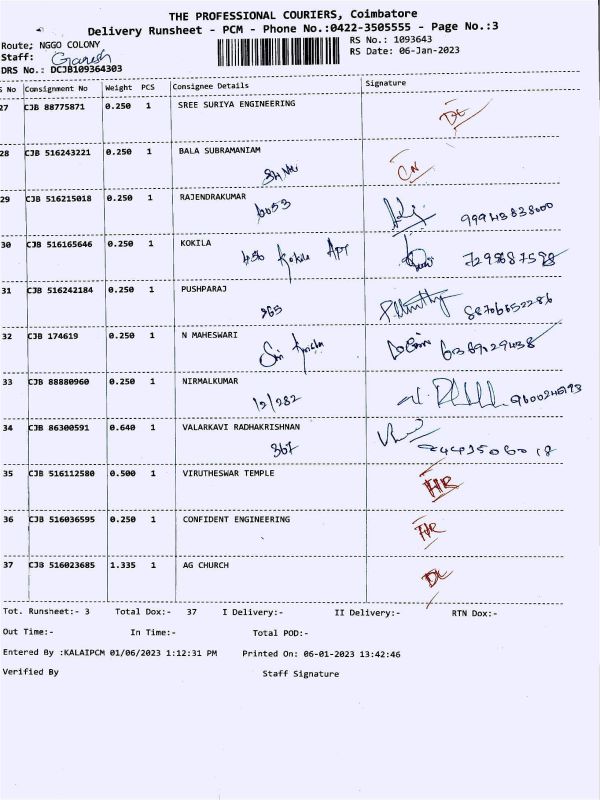 THE PROFESSIONAL COURIERS, Coimbatore
Delivery Runsheet - PCM - Phone No.:0422-3505555 - Page No.:3
Route; NGGO COLONY
RS No.: 1093643
Staff: Ganesh
RS Date: 06-Jan-2023
DRS No.: DCJB109364303
S No Consignment No Weight PCS Consignee Details Signature
27 CJB 88775871 0.250 1 SREE SURIYA ENGINEERING DL
28 CJB 516243221 0.250 1 BALA SUBRAMANIAM
CN
29 CJB 516215018 0.250 1 RAJENDRAKUMAR
6053
30 CJB 516165646 0.250 1 KOKILA
456 Kokila APT
31 CJB 516242184 0.250 1 PUSHPARAJ
265
32 CJB 174619 0.250 1 N MAHESWARI
33 CJB 88880960 0.250 1 NIRMALKUMAR
12/282
34 CJB 86300591 0.640 1 VALARKAVI RADHAKRISHNAN
367
35 CJB 516112580 0.500 1 VIRUTHESWAR TEMPLE
36 CJB 516036595 0.250 1 CONFIDENT ENGINEERING
37 CJB 516023685 1.335 1 AG CHURCH DL
Tot. Runsheet:- 3 Total Dox:- 37 I Delivery:- II Delivery:- RTN Dox:-
Out Time:- In Time:- Total POD:-
Entered By :KALAIPCM 01/06/2023 1:12:31 PM Printed On: 06-01-2023 13:42:46
Verified By Staff Signature